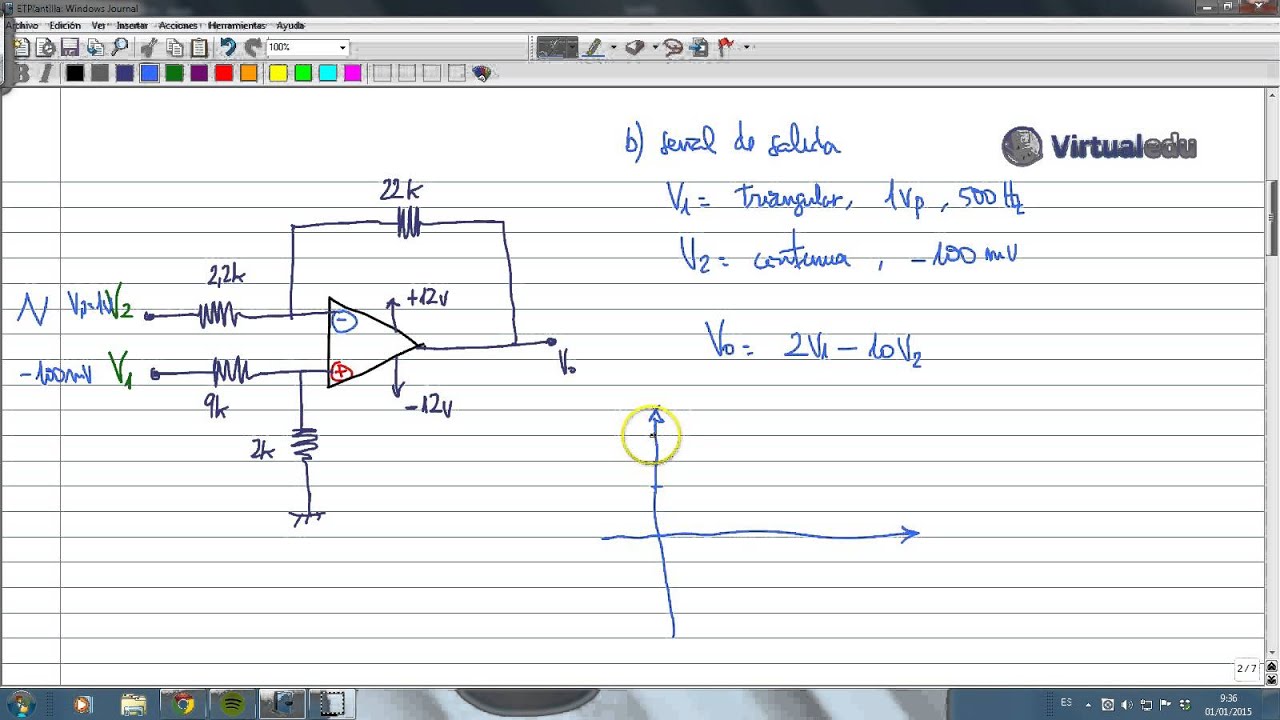 ETPlantilla: Windows Journal
Archivo Edición Ver Insertar Acciones Herramientas Ayuda
100%
B I
b) señal de salida
Virtualedu
V1 = triangular, 1Vp, 500 Hz
V2 = continua, -100 mV
V0 = 2V1 - 10V2
22k
2,2k
V2
+12v
-
V0
-100mV V1
+
9k
-12v
2k
2 / 7
ES
9:36
01/01/2015